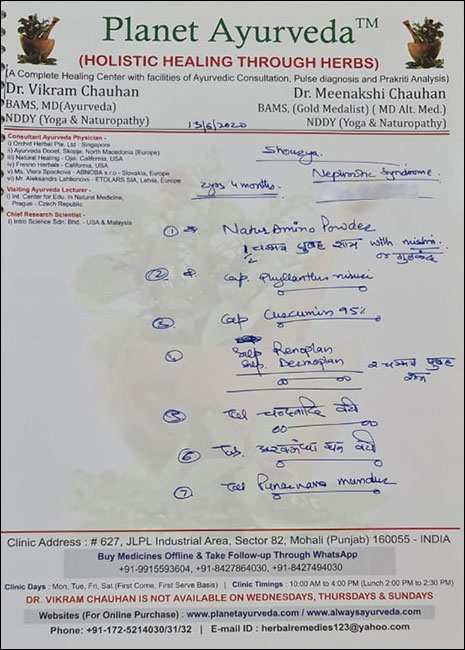 Planet Ayurveda™
(HOLISTIC HEALING THROUGH HERBS)
(A Complete Healing Center with facilities of Ayurvedic Consultation, Pulse diagnosis and Prakriti Analysis)
Dr. Vikram Chauhan
BAMS, MD(Ayurveda)
NDDY (Yoga & Naturopathy)
Dr. Meenakshi Chauhan
BAMS, (Gold Medalist) ( MD Alt. Med.)
NDDY (Yoga & Naturopathy)
13/6/2020
Consultant Ayurveda Physician -
i) Orchid Herbal Pte. Ltd - Singapore
ii) Ayurveda Dooel, Skopje, North Macedonia (Europe)
iii) Natural Healing - Ojai, California, USA
iv) Fresno Herbals - California, USA
v) Ms. Viera Spackova - ABNOBA s.r.o - Slovakia, Europe
vi) Mr. Aleksandrs Lahtionovs - ETOLARS SIA, Latvia, Europe
Visiting Ayurveda Lecturer -
i) Int. Center for Edu. in Natural Medicine,
Prague - Czech Republic
Chief Research Scientist -
i) Intro Science Sdn. Bhd. - USA & Malaysia
Shourya
Nephrotic Syndrome
2yrs 4 months.
① Natur Amino Powder
1/2 चम्मच सुबह शाम with mishri
or गुलकंद
② Cap. Phyllanthus niruri
③ Cap Curcumin 95%
④ Syp Renoplan
Syp. Dermoplan
२ चम्मच सुबह
शाम
⑤ Tab चन्दनादि वटी
⑥ Tab. अश्वगंधा घन वटी
⑦ Tab Punarnava mandur
Clinic Address : # 627, JLPL Industrial Area, Sector 82, Mohali (Punjab) 160055 - INDIA
Buy Medicines Offline & Take Follow-up Through WhatsApp
+91-9915593604, +91-8427864030, +91-8427494030
Clinic Days : Mon, Tue, Fri, Sat (First Come, First Serve Basis) | Clinic Timings : 10:00 AM to 4:00 PM (Lunch 2:00 PM to 2:30 PM)
DR. VIKRAM CHAUHAN IS NOT AVAILABLE ON WEDNESDAYS, THURSDAYS & SUNDAYS
Websites (For Online Purchase) : www.planetayurveda.com / www.alwaysayurveda.com
Phone: +91-172-5214030/31/32 | E-mail ID : herbalremedies123@yahoo.com